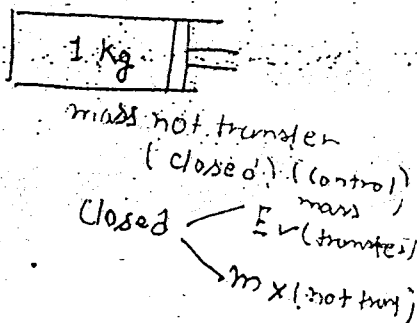 1 Kg
mass not transfer
(closed) (control)
mass
Closed
E ✓ (transfer)
m x (not